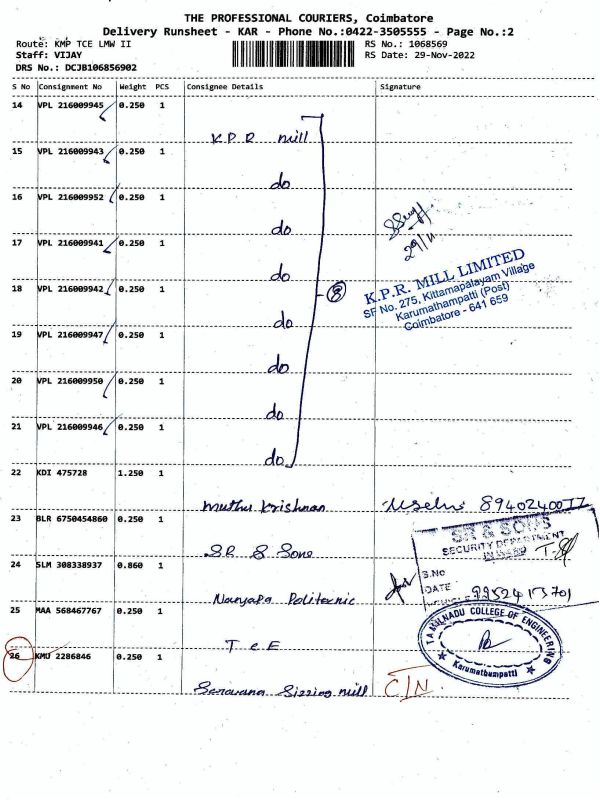 THE PROFESSIONAL COURIERS, Coimbatore
Delivery Runsheet - KAR - Phone No.:0422-3505555 - Page No.:2
Route: KMP TCE LMW II
RS No.: 1068569
Staff: VIJAY
RS Date: 29-Nov-2022
DRS No.: DCJB106856902
S No Consignment No Weight PCS Consignee Details Signature
14 VPL 216009945 0.250 1
K P R mill
15 VPL 216009943 0.250 1
do
16 VPL 216009952 0.250 1
do
17 VPL 216009941 0.250 1
do
18 VPL 216009942 0.250 1
do
19 VPL 216009947 0.250 1
do
20 VPL 216009950 0.250 1
do
21 VPL 216009946 0.250 1
do
8
29/11
K.P.R. MILL LIMITED
SF No. 275, Kittampalayam Village
Karumathampatti (Post)
Coimbatore - 641 659
22 KDI 475728 1.250 1
Muthu Krishnan
23 BLR 6750454860 0.250 1
SR & Sons
SR & SONS
SECURITY DEPARTMENT
24 SLM 308338937 0.860 1
S.No
DATE
9952413701
25 MAA 568467767 0.250 1
T C E
TAMILNADU COLLEGE OF ENGINEERING
Karumathampatti
26 KMU 2286846 0.250 1
Saravana Sizzing mill
C/N